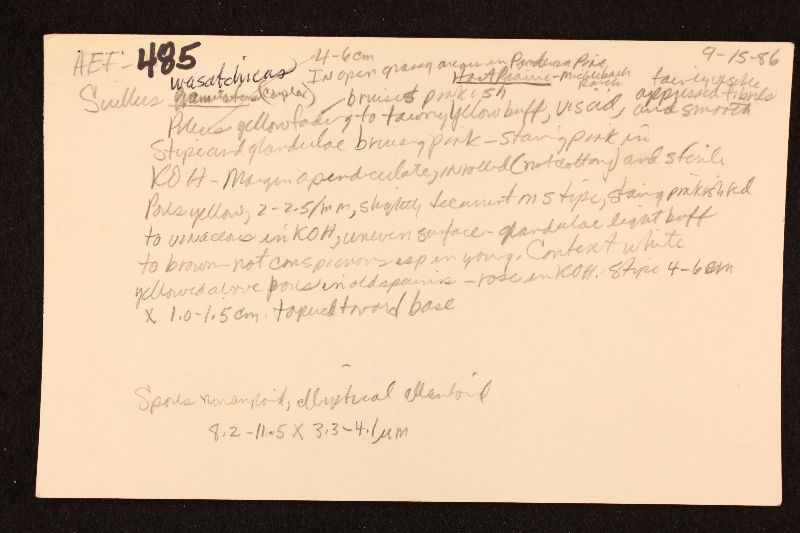 AEF- 485
4-6cm
9-15-86
In open grassy areas in Ponderosa Pine,
wasatchicus
Hart Prairie - Michelbach Ranch
Suillus granulatus (complex)
bruises pinkish
fairly visible
appressed fibrils
Pileus yellow fading to tawny yellow buff, viscid, and smooth
Stipe and glandulae bruising pink - staining pink in
KOH - Margin apendiculate, inrolled (not cottony) and sterile
Pores yellow, 2-2.5/mm, slightly decurrent on stipe, staining pinkish red
to vinaceous in KOH, uneven surface - glandulae light buff
to brown - not conspicuous esp in young. Context white
yellowed above pores in old specimens - rose in KOH. Stipe 4-6cm
x 1.0-1.5cm. tapered toward base
Spores nonamyloid, elliptical allantoid
8.2-11.5 x 3.3-4.1 µm